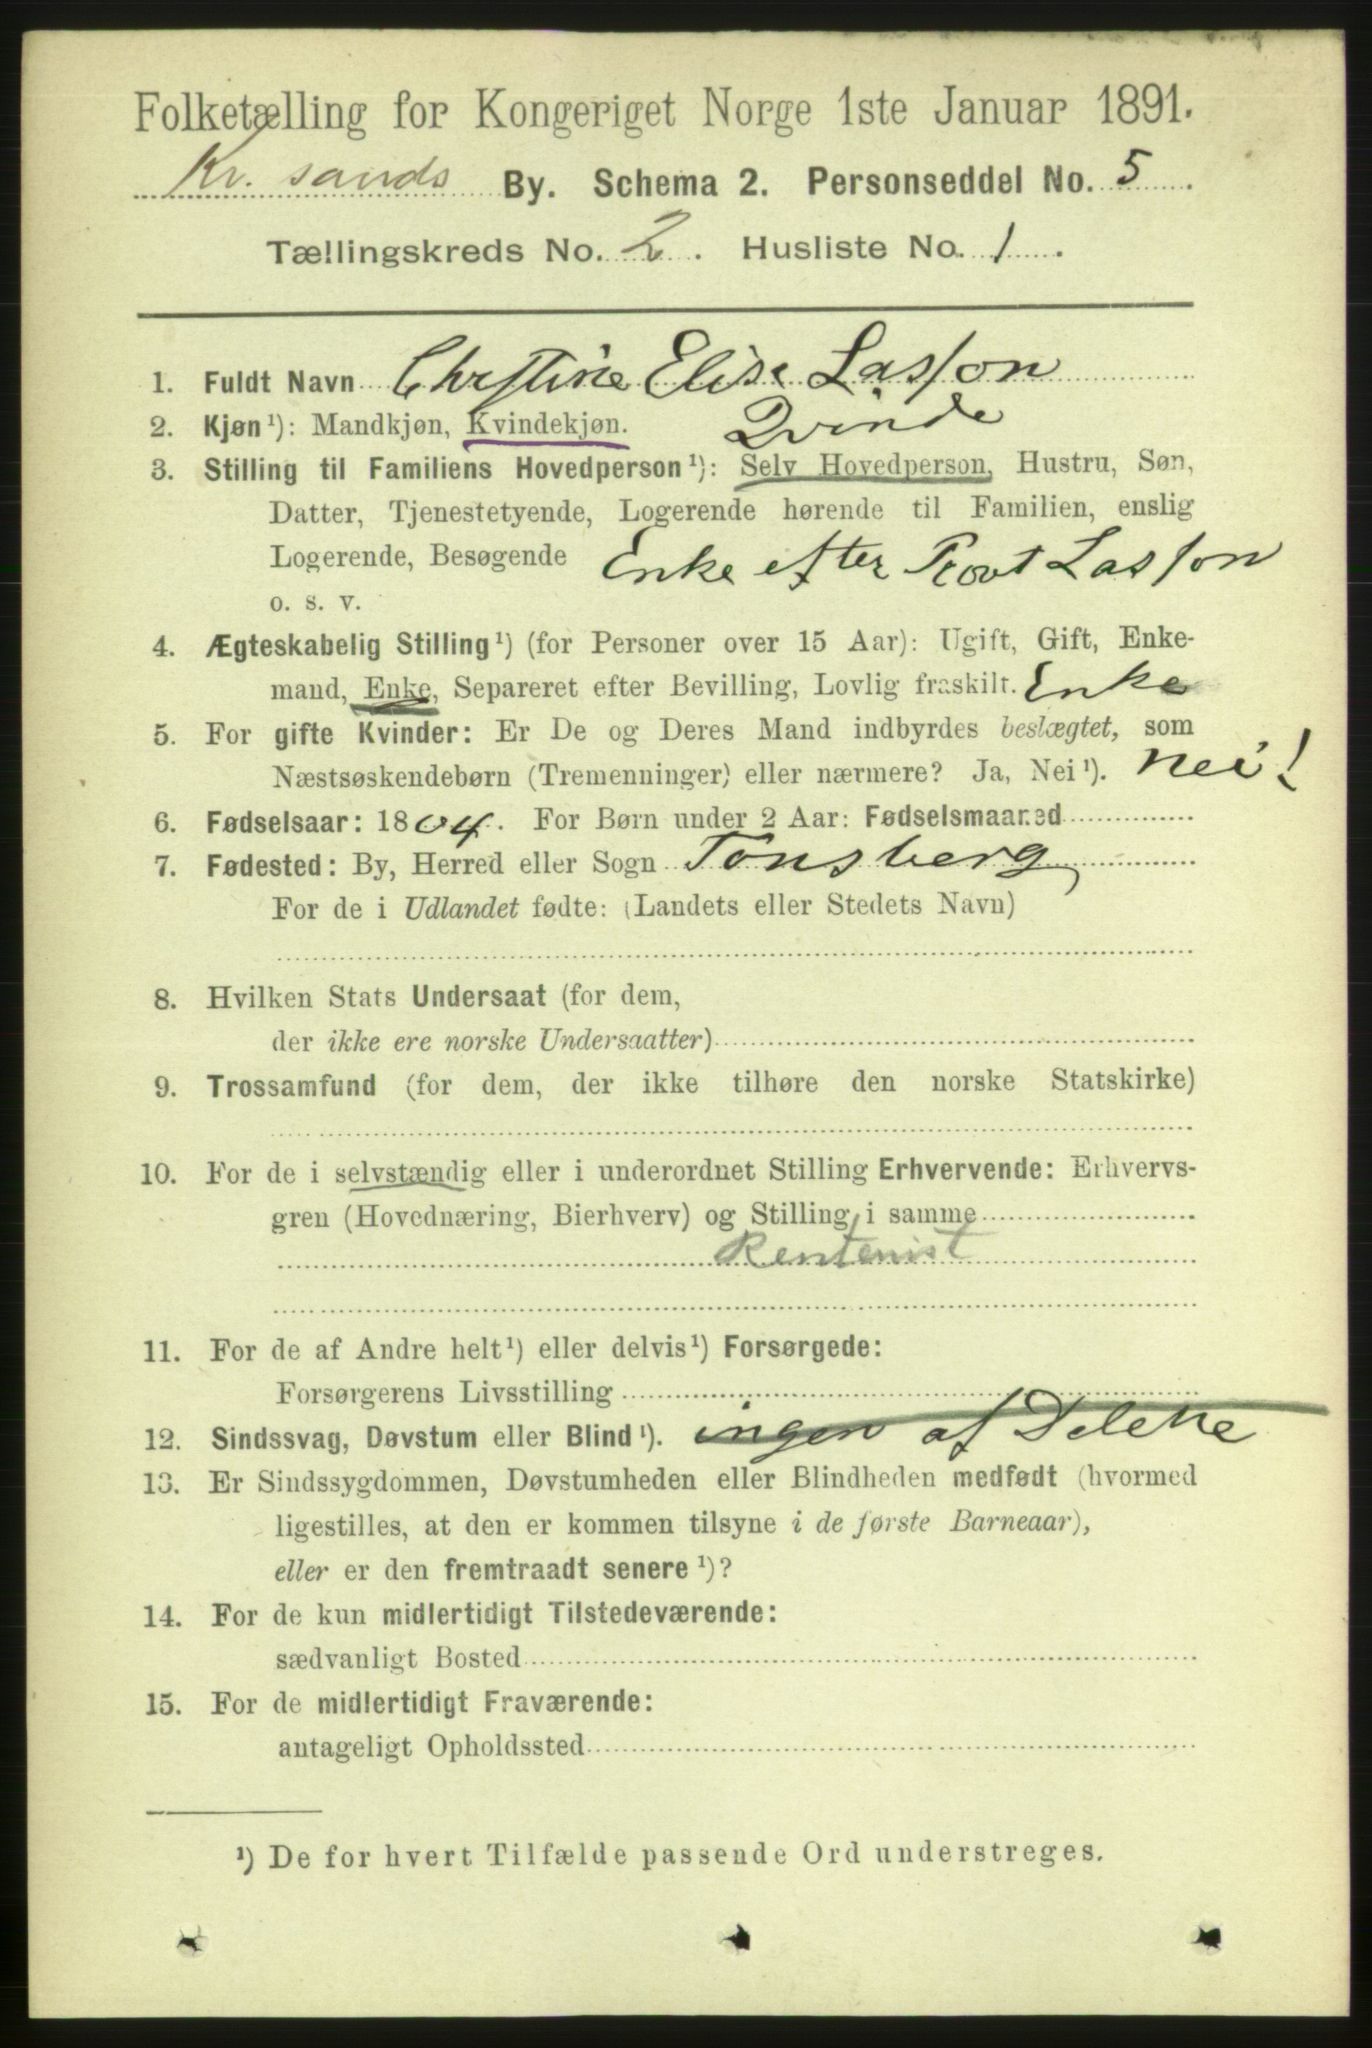 Folketælling for Kongeriget Norge 1ste Januar 1891.
Kr. sands By. Schema 2. Personseddel No. 5.
Tællingskreds No. 2. Husliste No. 1.
1. Fuldt Navn Christine Elise Lasson
2. Kjøn¹): Mandkjøn, Kvindekjøn. Qvinde
3. Stilling til Familiens Hovedperson¹): Selv Hovedperson, Hustru, Søn,
Datter, Tjenestetyende, Logerende hørende til Familien, enslig
Logerende, Besøgende Enke efter Provt Lasson
o. s. v.
4. Ægteskabelig Stilling¹) (for Personer over 15 Aar): Ugift, Gift, Enke-
mand, Enke, Separeret efter Bevilling, Lovlig fraskilt. Enke
5. For gifte Kvinder: Er De og Deres Mand indbyrdes beslægtet, som
Næstsøskendebørn (Tremenninger) eller nærmere? Ja, Nei¹). Nei!
6. Fødselsaar: 1804. For Børn under 2 Aar: Fødselsmaaned
7. Fødested: By, Herred eller Sogn Tønsberg
For de i Udlandet fødte: (Landets eller Stedets Navn)
8. Hvilken Stats Undersaat (for dem,
der ikke ere norske Undersaatter)
9. Trossamfund (for dem, der ikke tilhøre den norske Statskirke)
10. For de i selvstændig eller i underordnet Stilling Erhvervende: Erhvervs-
gren (Hovednæring, Bierhverv) og Stilling i samme
Rentenist
11. For de af Andre helt¹) eller delvis¹) Forsørgede:
Forsørgerens Livsstilling
12. Sindssvag, Døvstum eller Blind¹). ingen af Delene
13. Er Sindssygdommen, Døvstumheden eller Blindheden medfødt (hvormed
ligestilles, at den er kommen tilsyne i de første Barneaar),
eller er den fremtraadt senere¹)?
14. For de kun midlertidigt Tilstedeværende:
sædvanligt Bosted
15. For de midlertidigt Fraværende:
antageligt Opholdssted
¹) De for hvert Tilfælde passende Ord understreges.